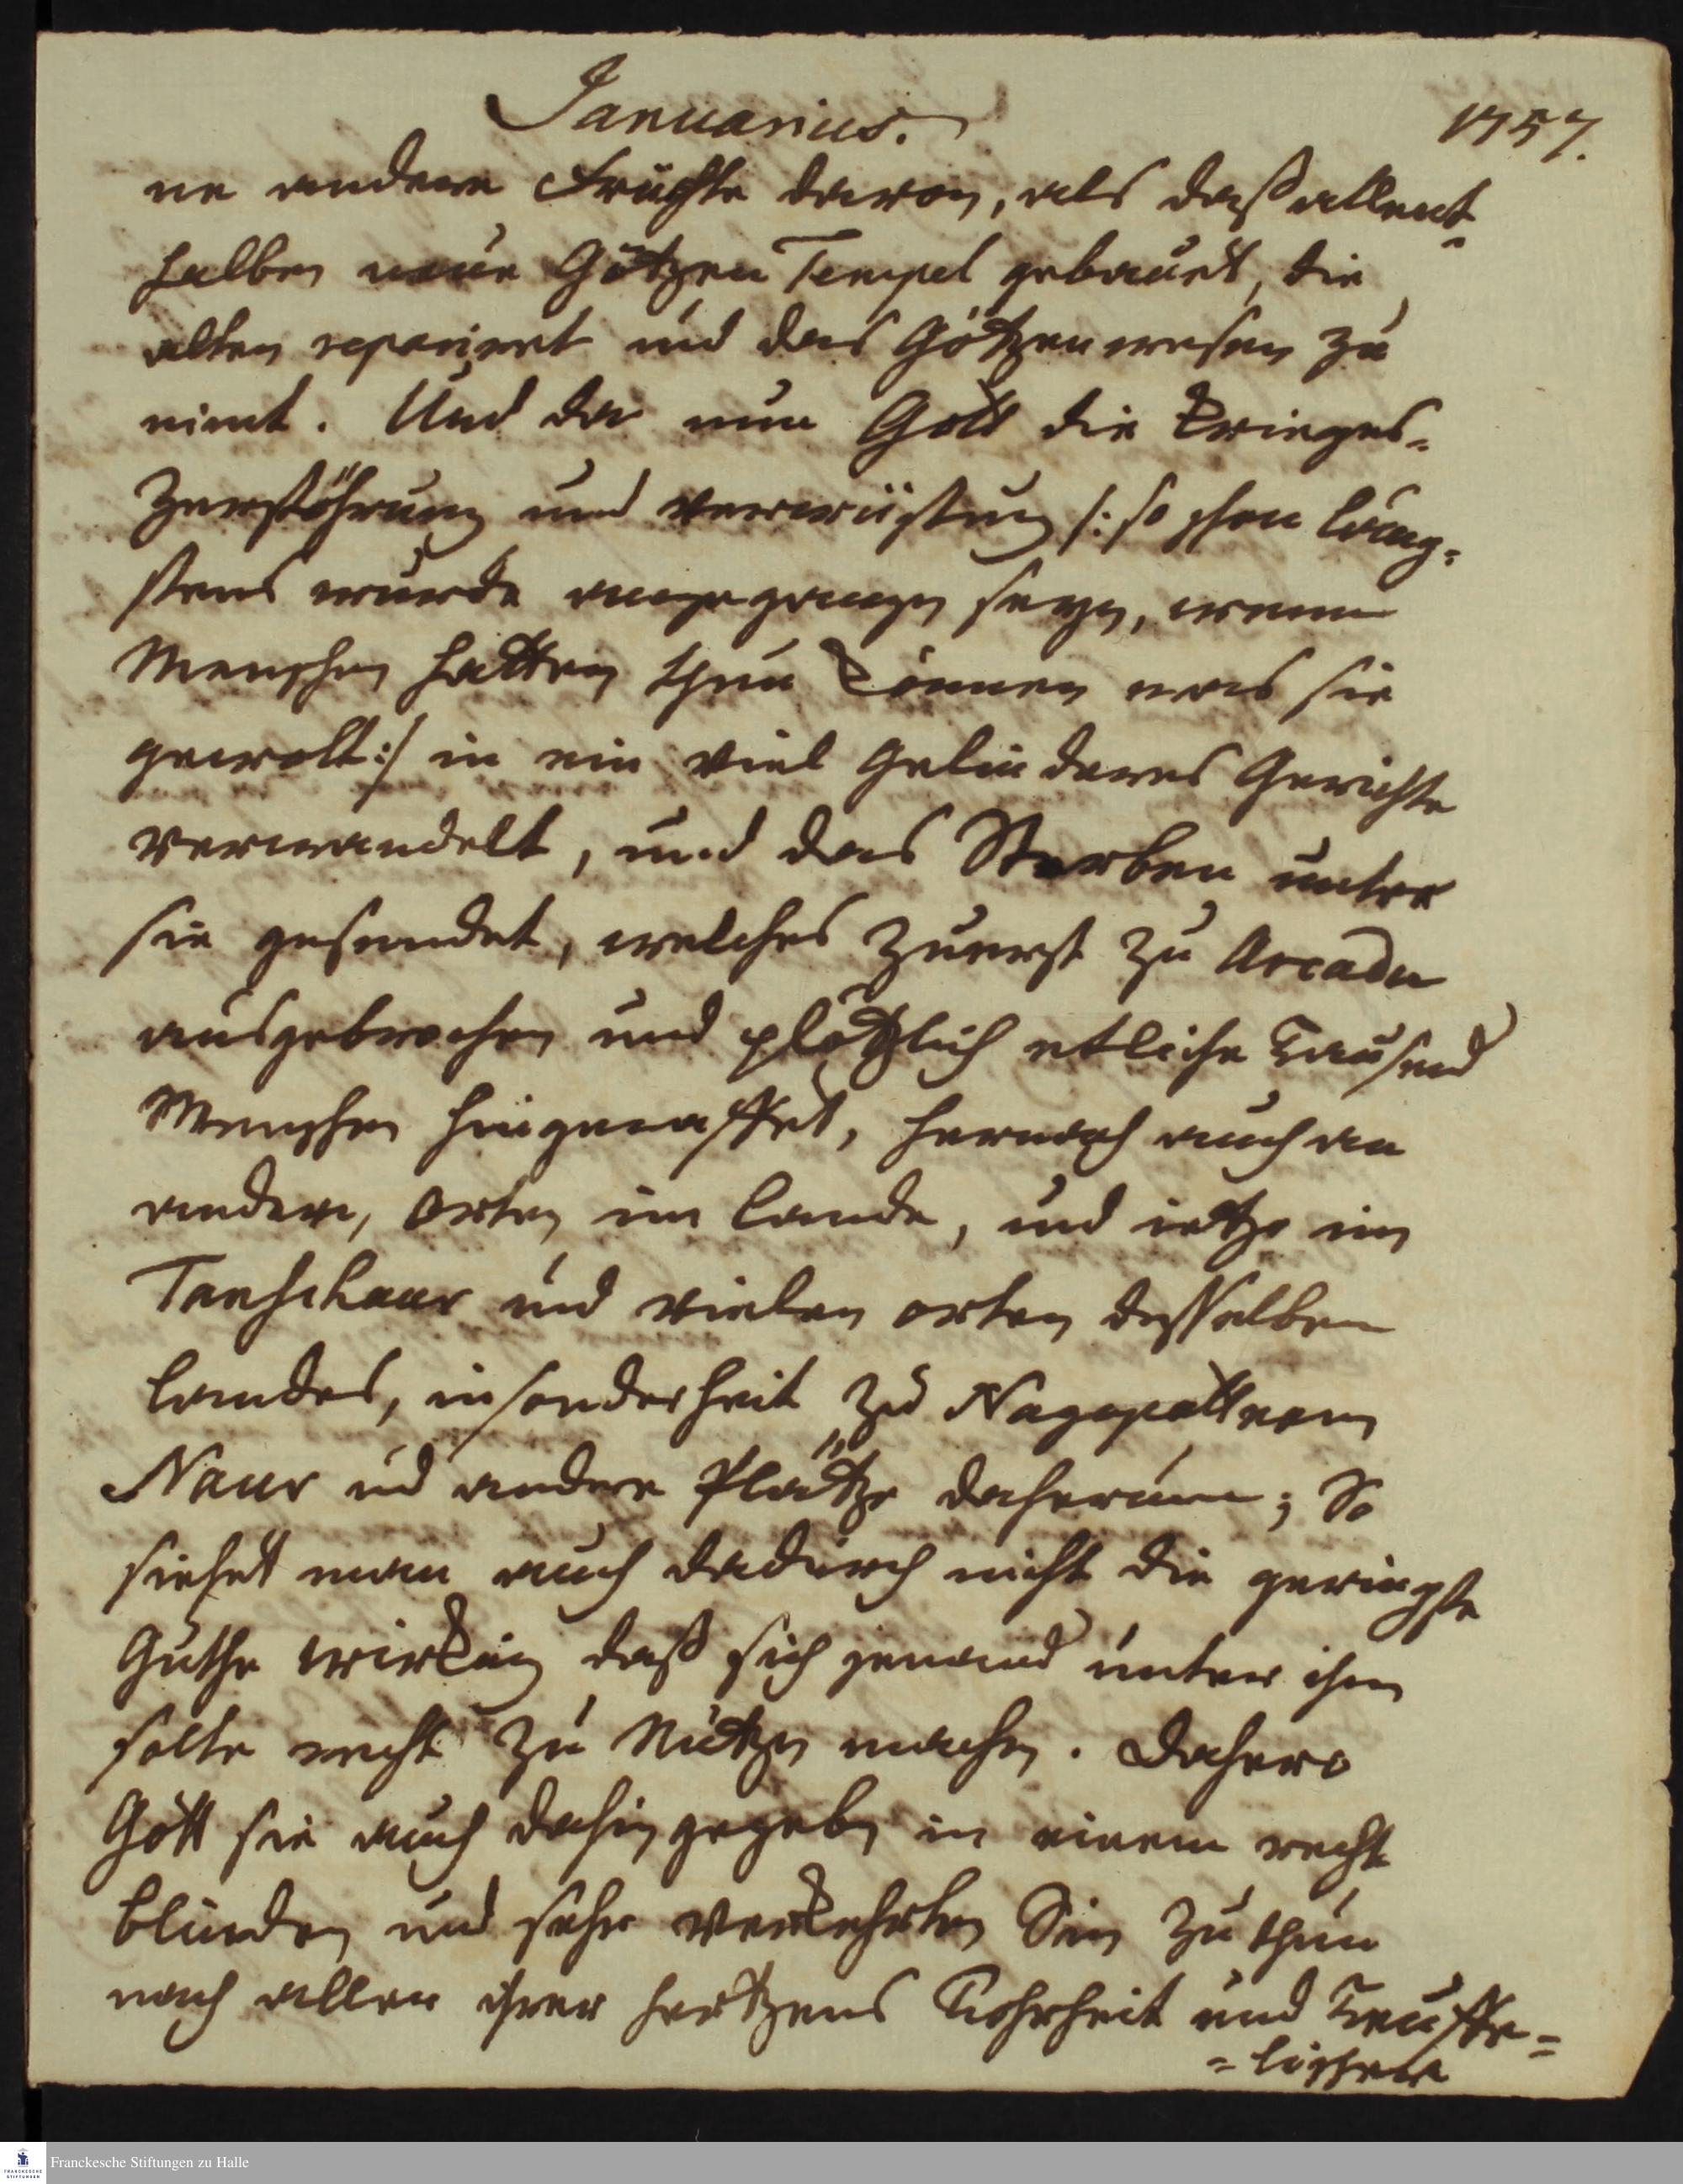 Januarius.
1757.
ne andere Früchte davon, als daß allent-
halben neue Götzen Tempel gebauet, die
alten repariert und das Götzenwesen zu
nimt. Und da nun Gott die Krieges-
Zerstöhrung und verwüstung /: so schon läng-
stens wurde angegangen seyn, wenn
Menschen hatten thun können was sie
gewolt :/ in ein viel gelinderes Gerichte
verwandelt, und das Sterben unter
sie gesendet, welches zuerst zu Arcadu
ausgebrochen und plötzlich etliche Tausend
Menschen hingeraffet, hernach auch an
andern, Orten im Lande, und ietzo im
Tanschaur und vielen orten desselben
Landes, insonderheit zu Nagapattnam
Naur ud andere Plätze daherum; So
siehet man auch dadurch nicht die geringste
Guthe wirkung daß sich jemand unter ihn
solte recht zu Nutzen machen. Dahero
Gott sie auch dahin gegeben in einem recht
blinden und sehr verkehrten Sin zu thun
nach allen ihrer Hertzens Thorheit und Teuffe-
-lischen
Franckesche Stiftungen zu Halle
FRANCKESCHE
STIFTUNGEN